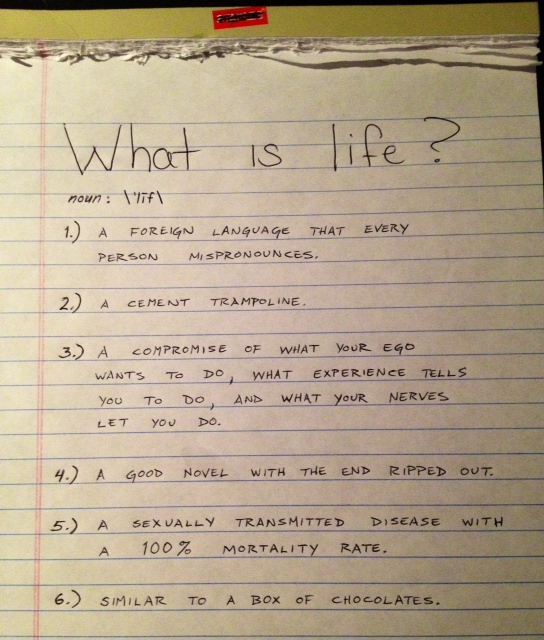 What is life?
noun: \'līf\
1.) A FOREIGN LANGUAGE THAT EVERY
PERSON MISPRONOUNCES.
2.) A CEMENT TRAMPOLINE.
3.) A COMPROMISE OF WHAT YOUR EGO
WANTS TO DO, WHAT EXPERIENCE TELLS
YOU TO DO, AND WHAT YOUR NERVES
LET YOU DO.
4.) A GOOD NOVEL WITH THE END RIPPED OUT.
5.) A SEXUALLY TRANSMITTED DISEASE WITH
A 100% MORTALITY RATE.
6.) SIMILAR TO A BOX OF CHOCOLATES.